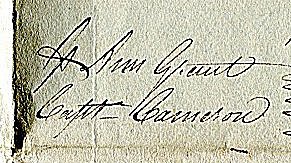 p Ann Grant
Captn Cameron